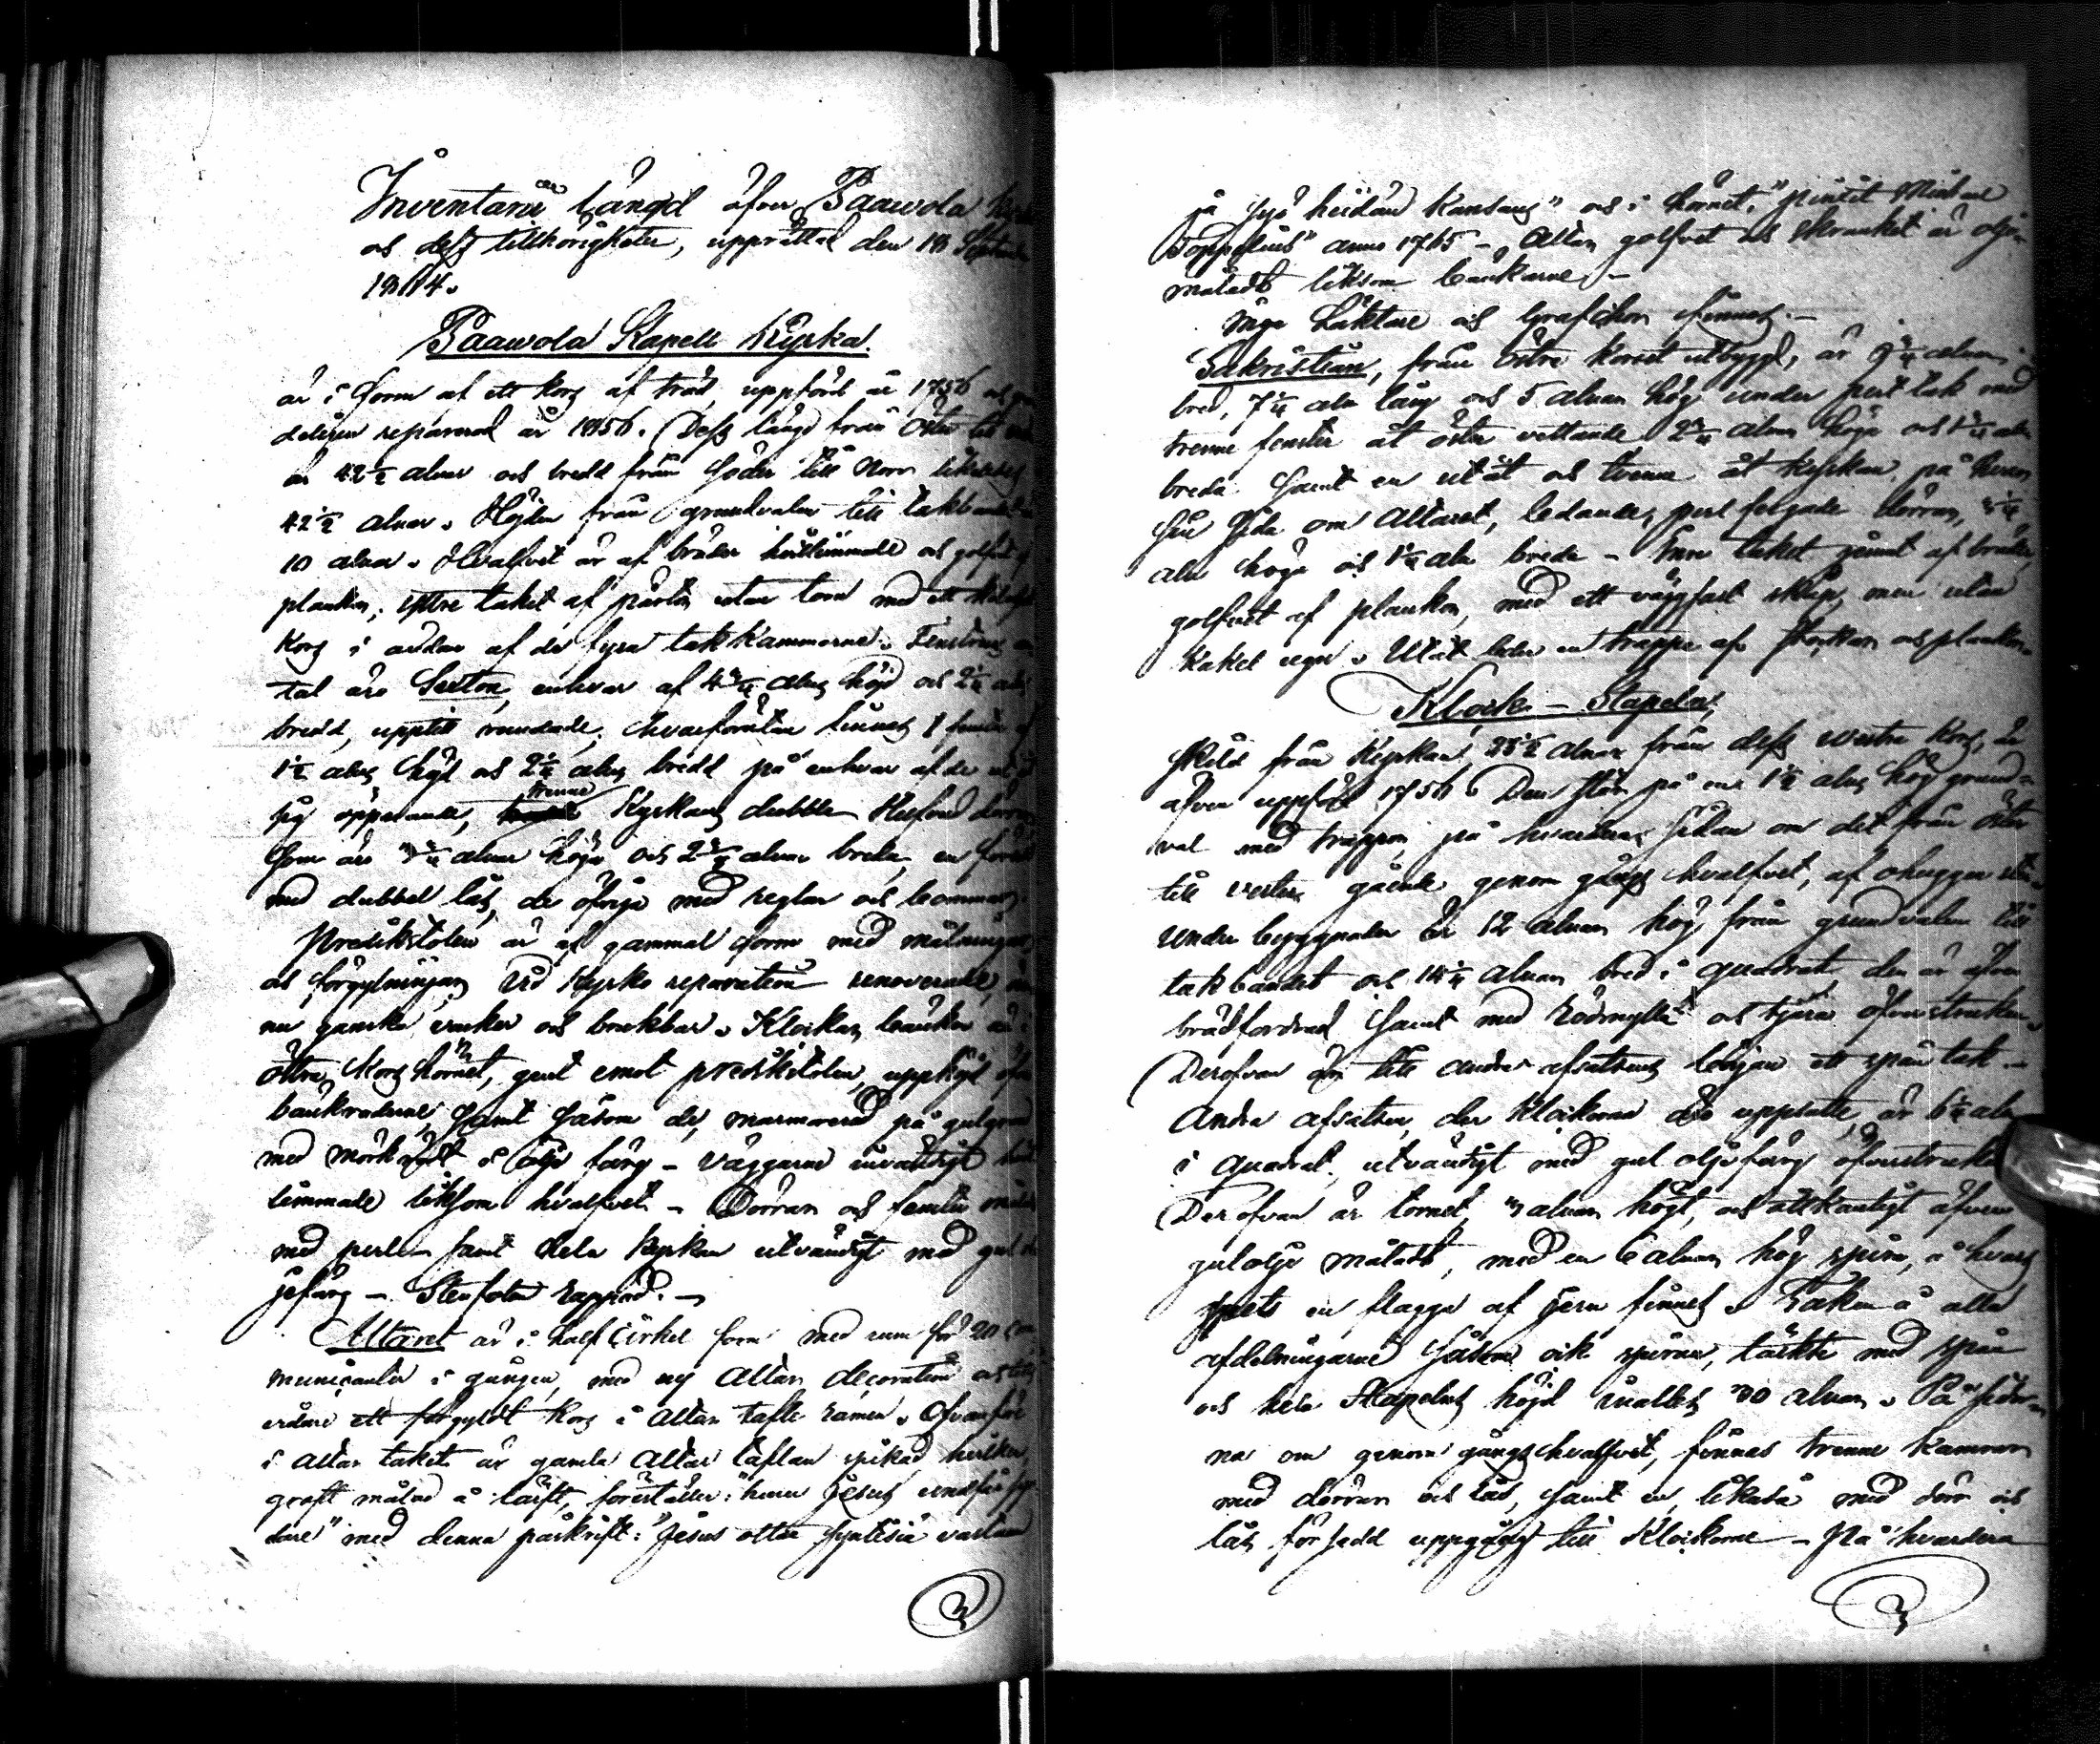 Inventarii Längd öfver Paawola
och dess tillhörigheter, upprättad den 18
1864.
Paawola Kapell Kyrka.
är i form af ett kors af träd, uppförd år 1756 och
delijen reparerad år 1856. Dess längd från Öster till
är 42½ alnar och bredd från Söder till Norr likaledes
42½ alnar. Höjden från grundvalen till takbandet
10 alnar. Hvalfvet är af bräder hvitlimmade och golfvet af
plankor, yttre taket af pärtor utan torn med ett
Kors i ändan af de fyra takkammarne. Fenstrens an
tal äro Sexton, enhvar af 4¾ alns höjd och 2¼ alns
bredd, upptill rundade, hvarförutan finnes 1 fenster af
1½ alns höjd och 2¼ alns bredd på enhvar af de utåt
sig öppnande, trenne Kyrkans dubbla Hufvud dörrar
som äro alnar höga och 2¼ alnar breda, en försedd
med dubbel lås, de öfriga med reglar och bommar.
Predikstolen är af gammal form med målningar
och förgyllningar, vid Kyrko reparation renoverade,
nu ganska vacker och brukbar. Klockars bänken är i
östra Kors hörnet, gent emot predikstolen, upphöjd öfver
bänkraderne, samt såsom de, marmorerad på gulgrund
med mörkrödt i olje färg – Väggarne invändigt hvit
limmade liksom hvalfvet – Dörrar och fenster målade
med perl– samt hela Kyrkan utvändigt med gul ol
jefärg – Stenfoten rappad. –
Altaret är i half cirkel form med rum för 20 com
municanter i gången, med ny altar decoration och
ett förgyldt kors i altar tafle ramen. Ofvanför
i altar taket är gamla altar taflan spikad, hvilken,
groft målad å läríft, föreställer: "huru Jesus undfår syn
dare" med denna påskrift: "Jesus ottaa syntisiä vastaan
ja syö heidän kansans" och i hörnet, "pinxit Michael
Toppelius" anno 1765 – Altar golfvet och skranket är olje
måladt liksom bänkarne –
Inga Läktare och Grafchor finnes. –
Sakristian, från östra korset utbyggd, är 9¼ alnar
bred, 7¼ aln lång och 5 alnar hög under perl tak med
trenne fenster åt öster vettande 2¼ alnar höga och 1¼ aln
breda samt en utåt och tvenne åt kyrkan, på hvar
sin sida om Altaret, ledande, perl felgade dörrar,
aln höga och 1¾ aln breda – Inre taket jämnt af bräder,
golfvet af plankor, med ett väggfast skåp, men utan
kakel ugn. Utåt leder en trappa af stockar och plankor.
Klock-Stapeln,
skild från Kyrkan, 28½ alnar från dess vestra kors, är
äfven uppförd 1756. Den står på en 1½ alns hög grund-
val med trappor på hvardera sidan om det från öster
till vester gående genom gångs hvalfvet, af ohuggen sten
Under byggnaden är 12 alnar hög från grundvalen till
takbandet och 14¼ alnar bred i quadrat, den är äfven
brädfordrad samt med rödmylla och tjära öfverstruken.
Derofvan är till andra afsatsens början ett spån tak. –
Andra afsatsen, der klockorne äro uppsatte, är 6¼ aln
i quadrat, utvändigt med gul oljefärg öfverstruken
Derofvan är tornet, 3 alnar högt, och åttkantigt äfven
gulolje måladt, med en 6 alnar hög spira, å hvars
spets en flagga af jern finnes. Taken å alla
afdelningarne såsom ock spiran, täckte med spån
och hela Stapelns höjd inalles 30 alnar. På sidor-
na om genom gångs hvalfvet, finnas trenne kamrar
med dörrar och lås, samt en likaså med dörr och
lås försedd uppgång till Klockorne – På hvardera